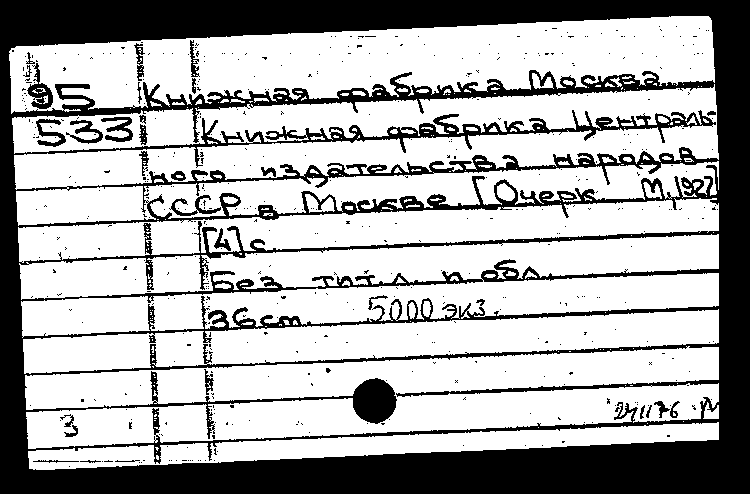 95 Книжная фабрика Москва
533 Книжная фабрика Централь-
ного издательства народов
СССР в Москве. [Очерк М., 1927]
[4] с.
Без тит. л. и обл.
36 ст. 5000 экз.
3